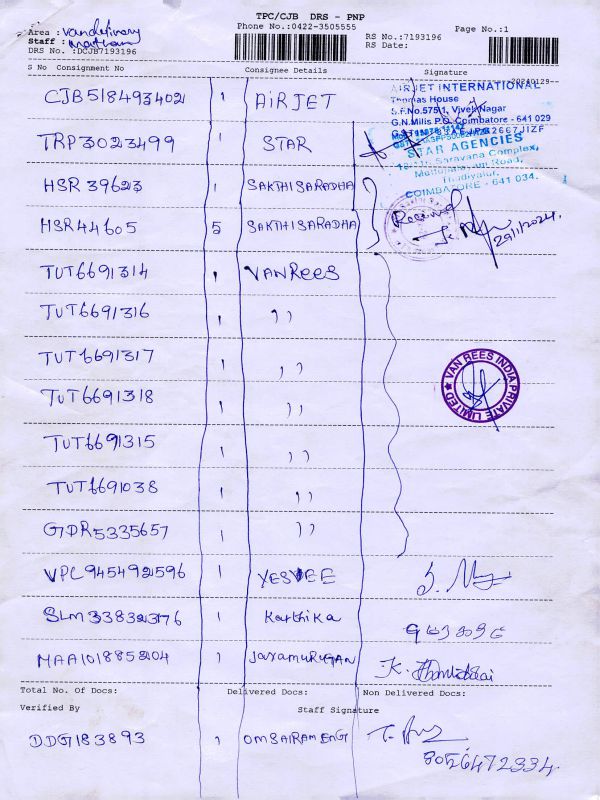 TPC/CJB DRS - PNP
Phone No.:0422-3505555
Page No.:1
Area : Vandelivery
Staff : Mathan
DRS No. :DCJB7193196
RS No.:7193196
RS Date:
S No Consignment No Consignee Details Signature
20240129
CJB518493402 1 AIRJET
AIRJET INTERNATIONAL
Thomas House
S.F.No.575/1, Vivek Nagar
G.N.Mills P.O. Coimbatore - 641 029
TRP3023499 1 STAR
STAR AGENCIES
Saravana Complex,
Mettupalayam Road,
Thudiyalur,
COIMBATORE - 641 034.
HSR 39623 1 SAKTHISARADHA
HSR44605 5 SAKTHISARADHA
Received
29/1/2024.
TUT6691314 1 VANRees
TUT6691316 1 ))
TUT6691317 1 ))
TUT6691318 1 ))
VAN REES INDIA PRIVATE LIMITED
TUT6691315 1 ))
TUT6691038 1 ))
GDR5335657 1 ))
VPL945492596 1 YESVEE
SLM338323176 1 Karthika
MAA1018852104 1 Jayamurugan
Total No. Of Docs: Delivered Docs: Non Delivered Docs:
Verified By Staff Signature
DDG183893 1 OMSAIRAM ENG
8056472334.